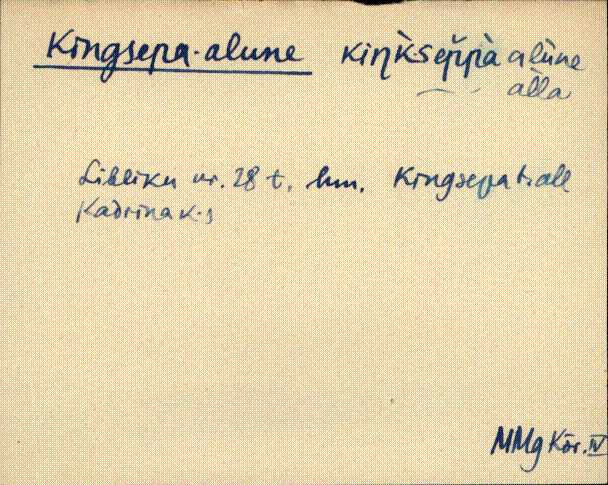 Kingsepa-alune kiŋ̀ksep̆p̆à alune
alla
Libliku nr. 28 t, hm. Kingsepa t. all
Kadrina k. s
MMg Kõr. IV